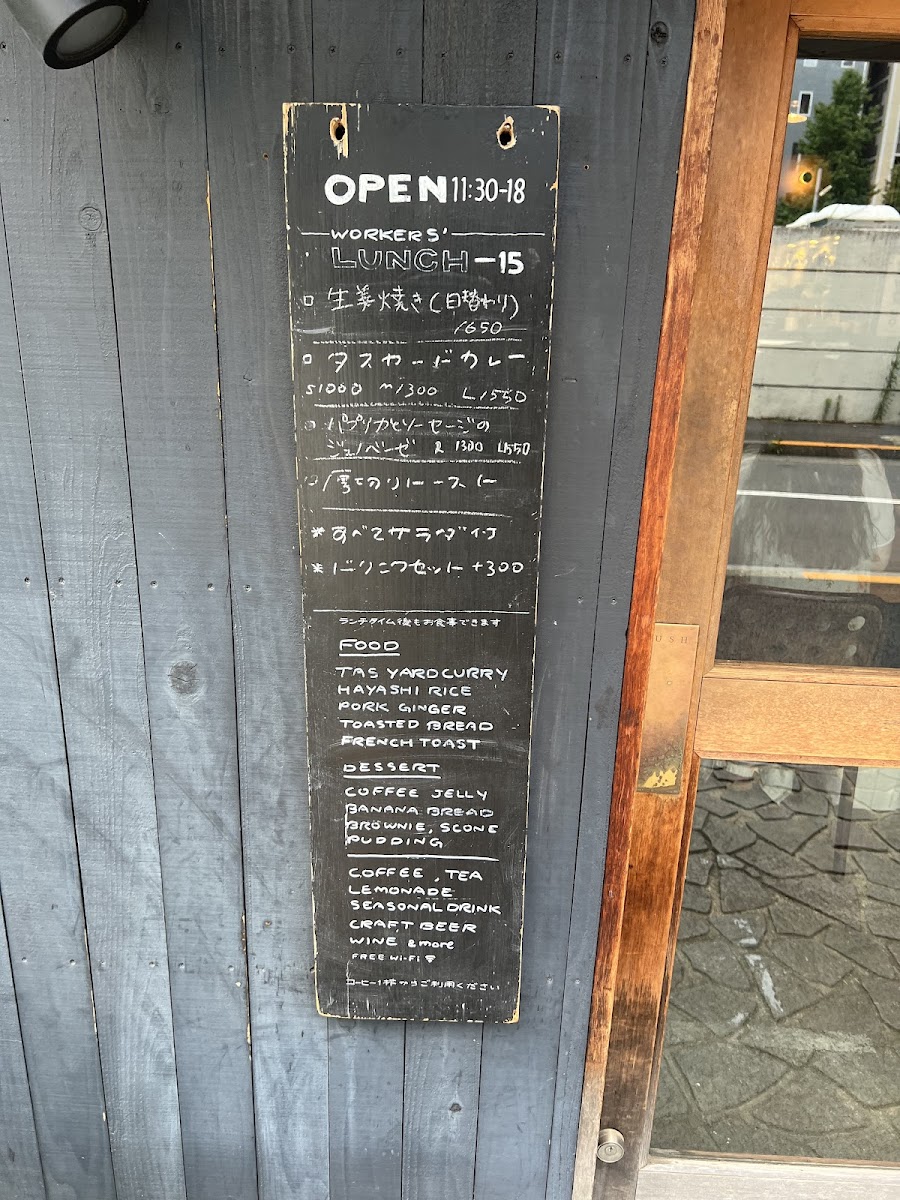 OPEN 11:30-18
WORKERS'
LUNCH -15
□ 生姜焼き(日替わり)
1650
□ タスヤードカレー
S1000 M1300 L1550
□ パプリカとソーセージの
ジェノベーゼ R 1300 L1550
□ 厚切りトースト
* すべてサラダ付
* ドリンクセット +300
ランチタイム後もお食事できます
FOOD
TAS YARD CURRY
HAYASHI RICE
PORK GINGER
TOASTED BREAD
FRENCH TOAST
DESSERT
COFFEE JELLY
BANANA BREAD
BROWNIE, SCONE
PUDDING
COFFEE, TEA
LEMONADE
SEASONAL DRINK
CRAFT BEER
WINE & more
FREE WI-FI
コーヒー1杯からご利用ください
USH